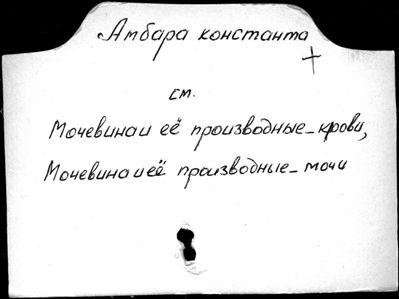 Амбара константа
см.
Мочевина и её производные - крови,
Мочевина и её производные - мочи